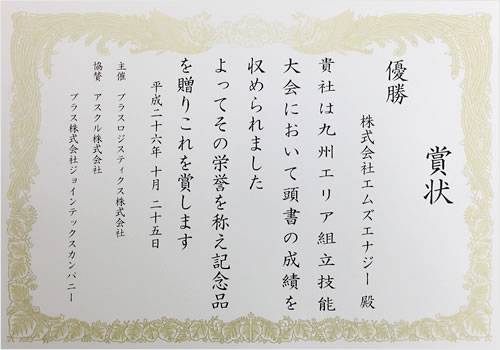 賞状
優勝
株式会社エムズエナジー 殿
貴社は九州エリア組立技能
大会において頭書の成績を
収められました
よってその栄誉を称え記念品
を贈りこれを賞します
平成二十六年 十月 二十五日
主催 プラスロジスティクス株式会社
協賛 アスクル株式会社
プラス株式会社ジョインテックスカンパニー